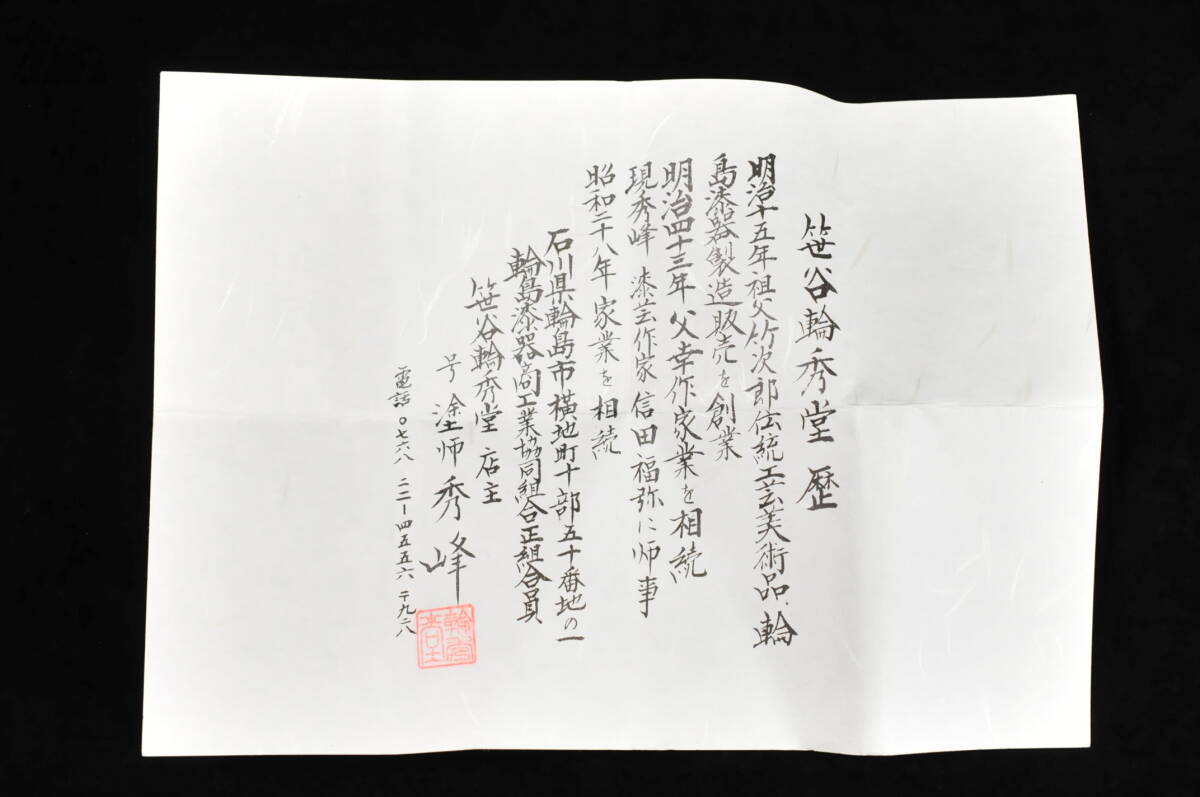 笹谷輪秀堂 歴
明治十五年祖父竹次郎伝統工芸美術品、輪
島漆器製造販売を創業
明治四十三年 父幸作家業を相続
現秀峰 漆芸作家 信田福弥に师事
昭和二十八年 家業を相続
石川県輪島市横地町十部五十番地の一
輪島漆器商工業協同組合正組合員
笹谷輪秀堂 店主
号 塗师 秀峰
輪秀堂
電話〇七六八 二二ー四五五六 〒九二八